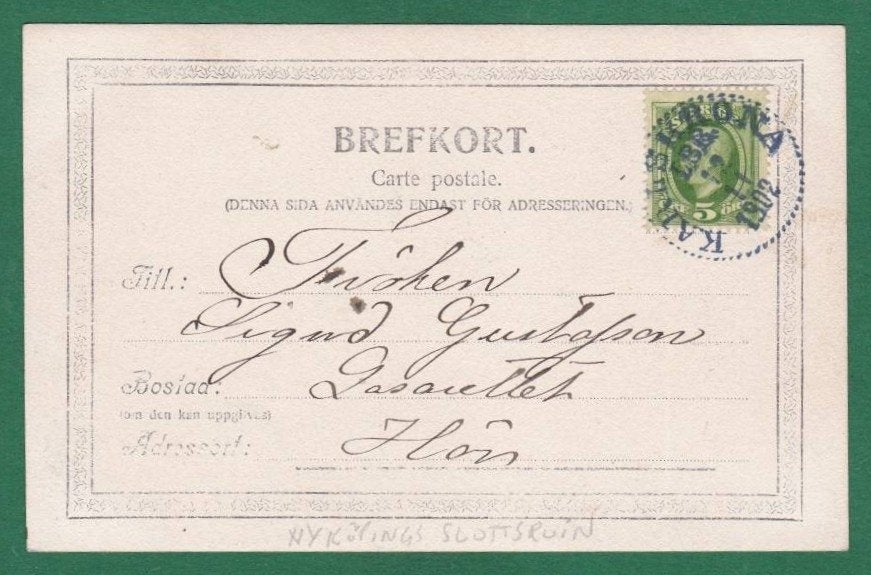 BREFKORT.
Carte postale.
(DENNA SIDA ANVÄNDES ENDAST FÖR ADRESSERINGEN.)
SVERIGE
5
KARLSKRONA
LBR.
1902
Till.: Fröken
Sigrid Gustafson
Bostad: Lasarettet
(om den kan uppgifvas)
Adressort: Höör
NYKÖPINGS SLOTTSRUIN